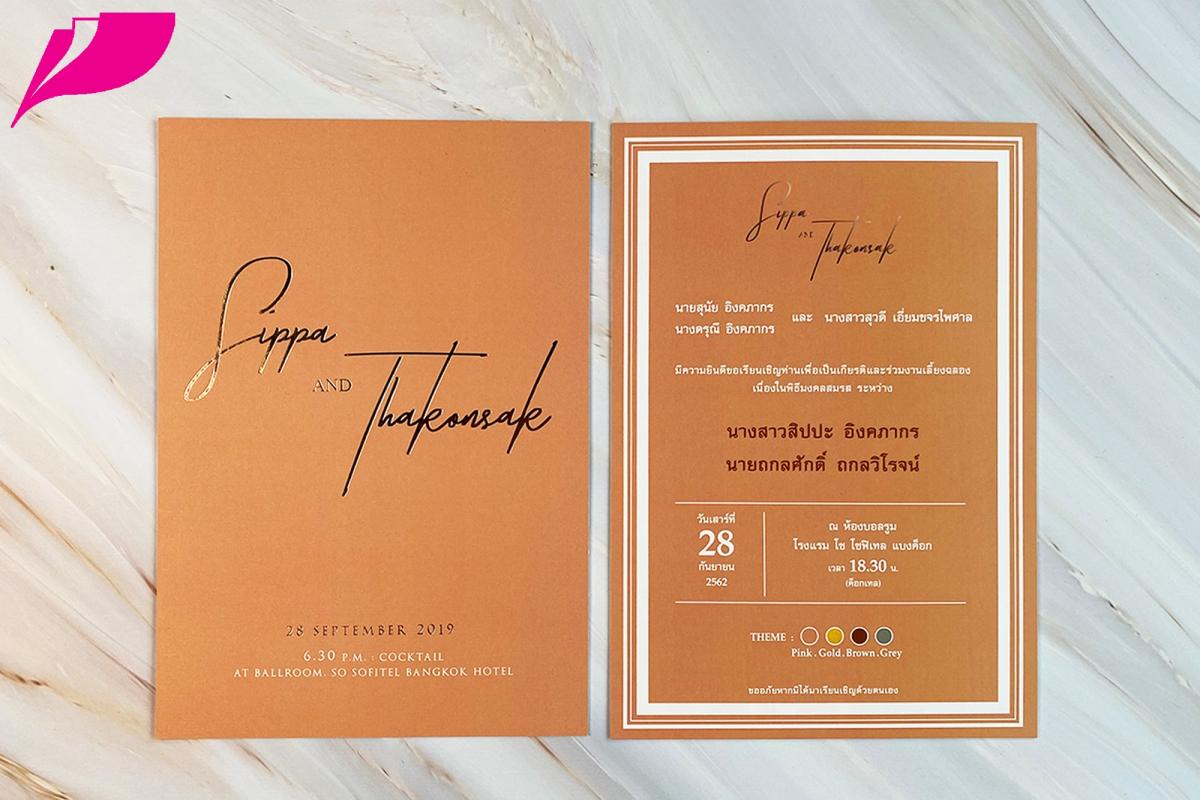 Sippa
AND
Thakonsak
28 SEPTEMBER 2019
6.30 P.M. : COCKTAIL
AT BALLROOM, SO SOFITEL BANGKOK HOTEL
Sippa
AND
Thakonsak
นายสุนัย อิงคภากร
นางดรุณี อิงคภากร
และ นางสาวสุวดี เอี่ยมขจรไพศาล
มีความยินดีขอเรียนเชิญท่านเพื่อเป็นเกียรติและร่วมงานเลี้ยงฉลอง
เนื่องในพิธีมงคลสมรส ระหว่าง
นางสาวสิปปะ อิงคภากร
นายถกลศักดิ์ ถกลวิโรจน์
วันเสาร์ที่
28
กันยายน
2562
ณ ห้องบอลรูม
โรงแรม โซ โซฟิเทล แบงค็อก
เวลา 18.30 น.
(ค็อกเทล)
THEME :
Pink . Gold . Brown . Grey
ขออภัยหากมิได้มาเรียนเชิญด้วยตนเอง